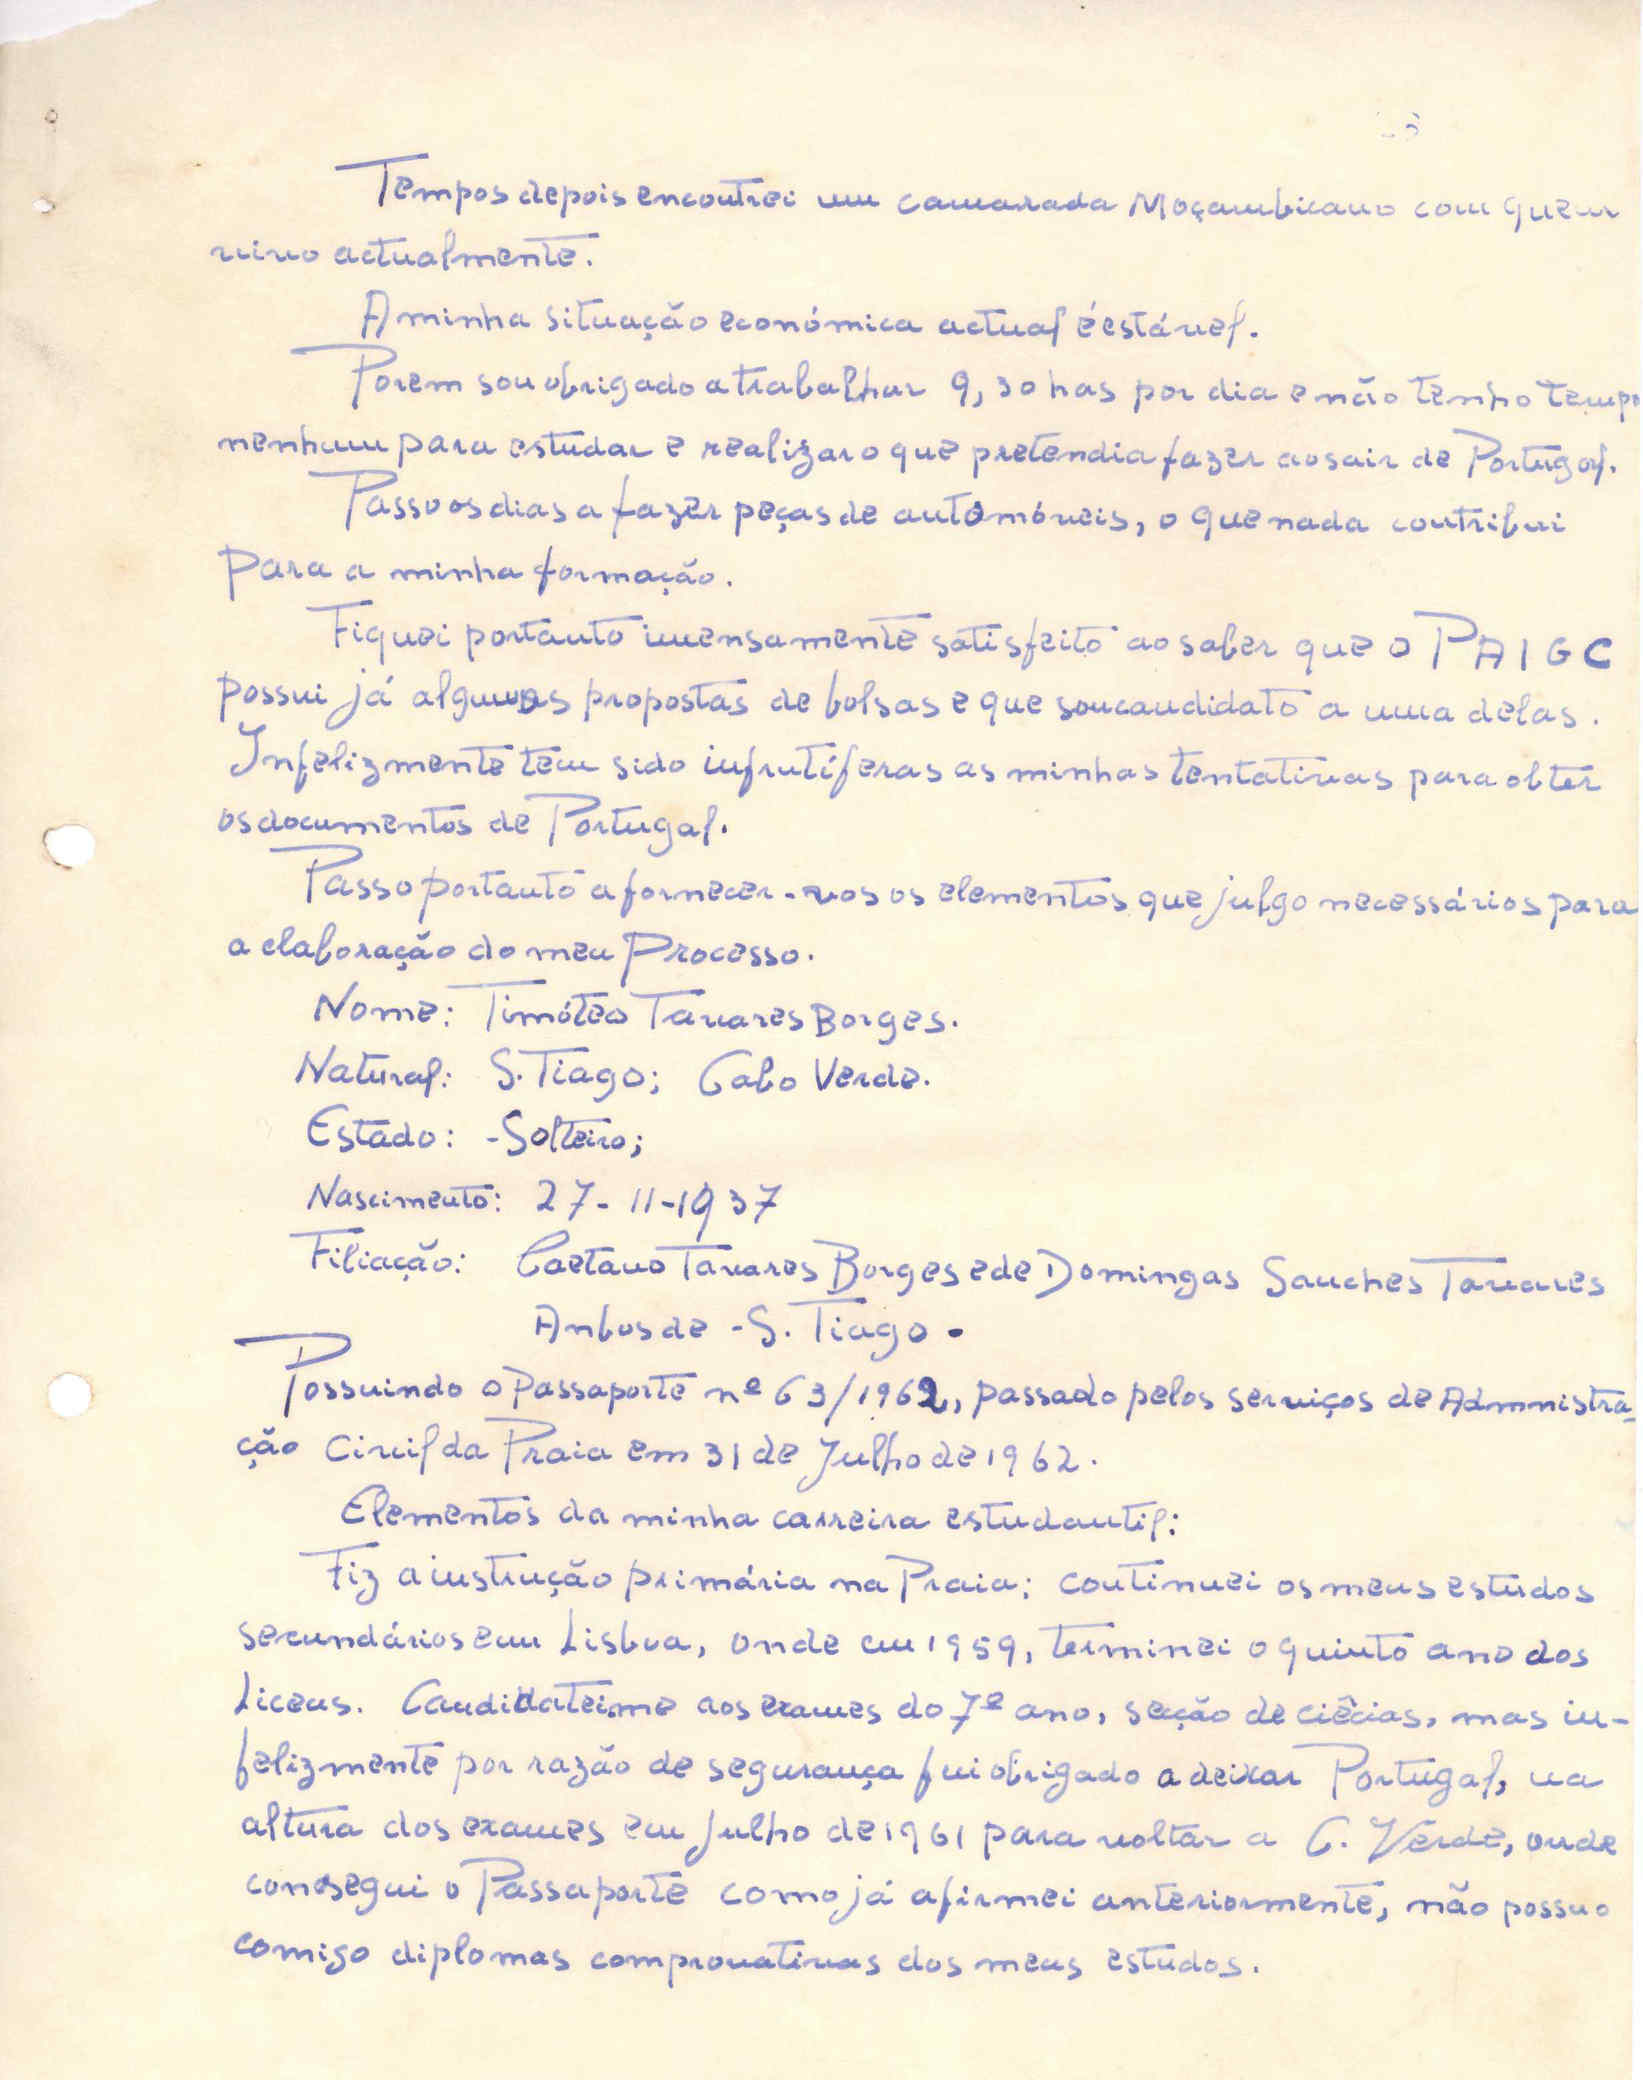 Tempos depois encontrei um camarada Moçambicano com quem
vivo actualmente.
A minha situação económica actual é estável.
Porem sou obrigado a trabalhar 9,30 has por dia e não tenho tempo
nenhum para estudar e realizar o que pretendia fazer ao sair de Portugal.
Passo os dias a fazer peças de automóveis, o que nada contribui
para a minha formação.
Fiquei portanto imensamente satisfeito ao saber que o PAIGC
possui já algumas propostas de bolsas e que sou candidato a uma delas.
Infelizmente tem sido infrutíferas as minhas tentativas para obter
os documentos de Portugal.
Passo portanto a fornecer-vos os elementos que julgo necessários para
a elaboração do meu Processo.
Nome: Timóteo Tavares Borges.
Natural: S. Tiago; Cabo Verde.
Estado: - Solteiro;
Nascimento: 27-11-1937
Filiação: Caetano Tavares Borges e de Domingas Sanches Tavares
Anbos de - S. Tiago -
Possuindo o Passaporte nº 63/1962, passado pelos serviços de Admnistra-
ção Civil da Praia em 31 de Julho de 1962.
Elementos da minha carreira estudantil:
Fiz a instrução primária na Praia; continuei os meus estudos
secundários em Lisboa, onde em 1959, terminei o quinto ano dos
Liceus. Candidatei-me aos exames do 7º ano, seção de ciêcias, mas in-
felizmente por razão de segurança fui obrigado a deixar Portugal, na
altura dos exames em Julho de 1961 para voltar a C. Verde, onde
consegui o Passaporte como já afirmei anteriormente, não possuo
comigo diplomas comprovativas dos meus estudos.